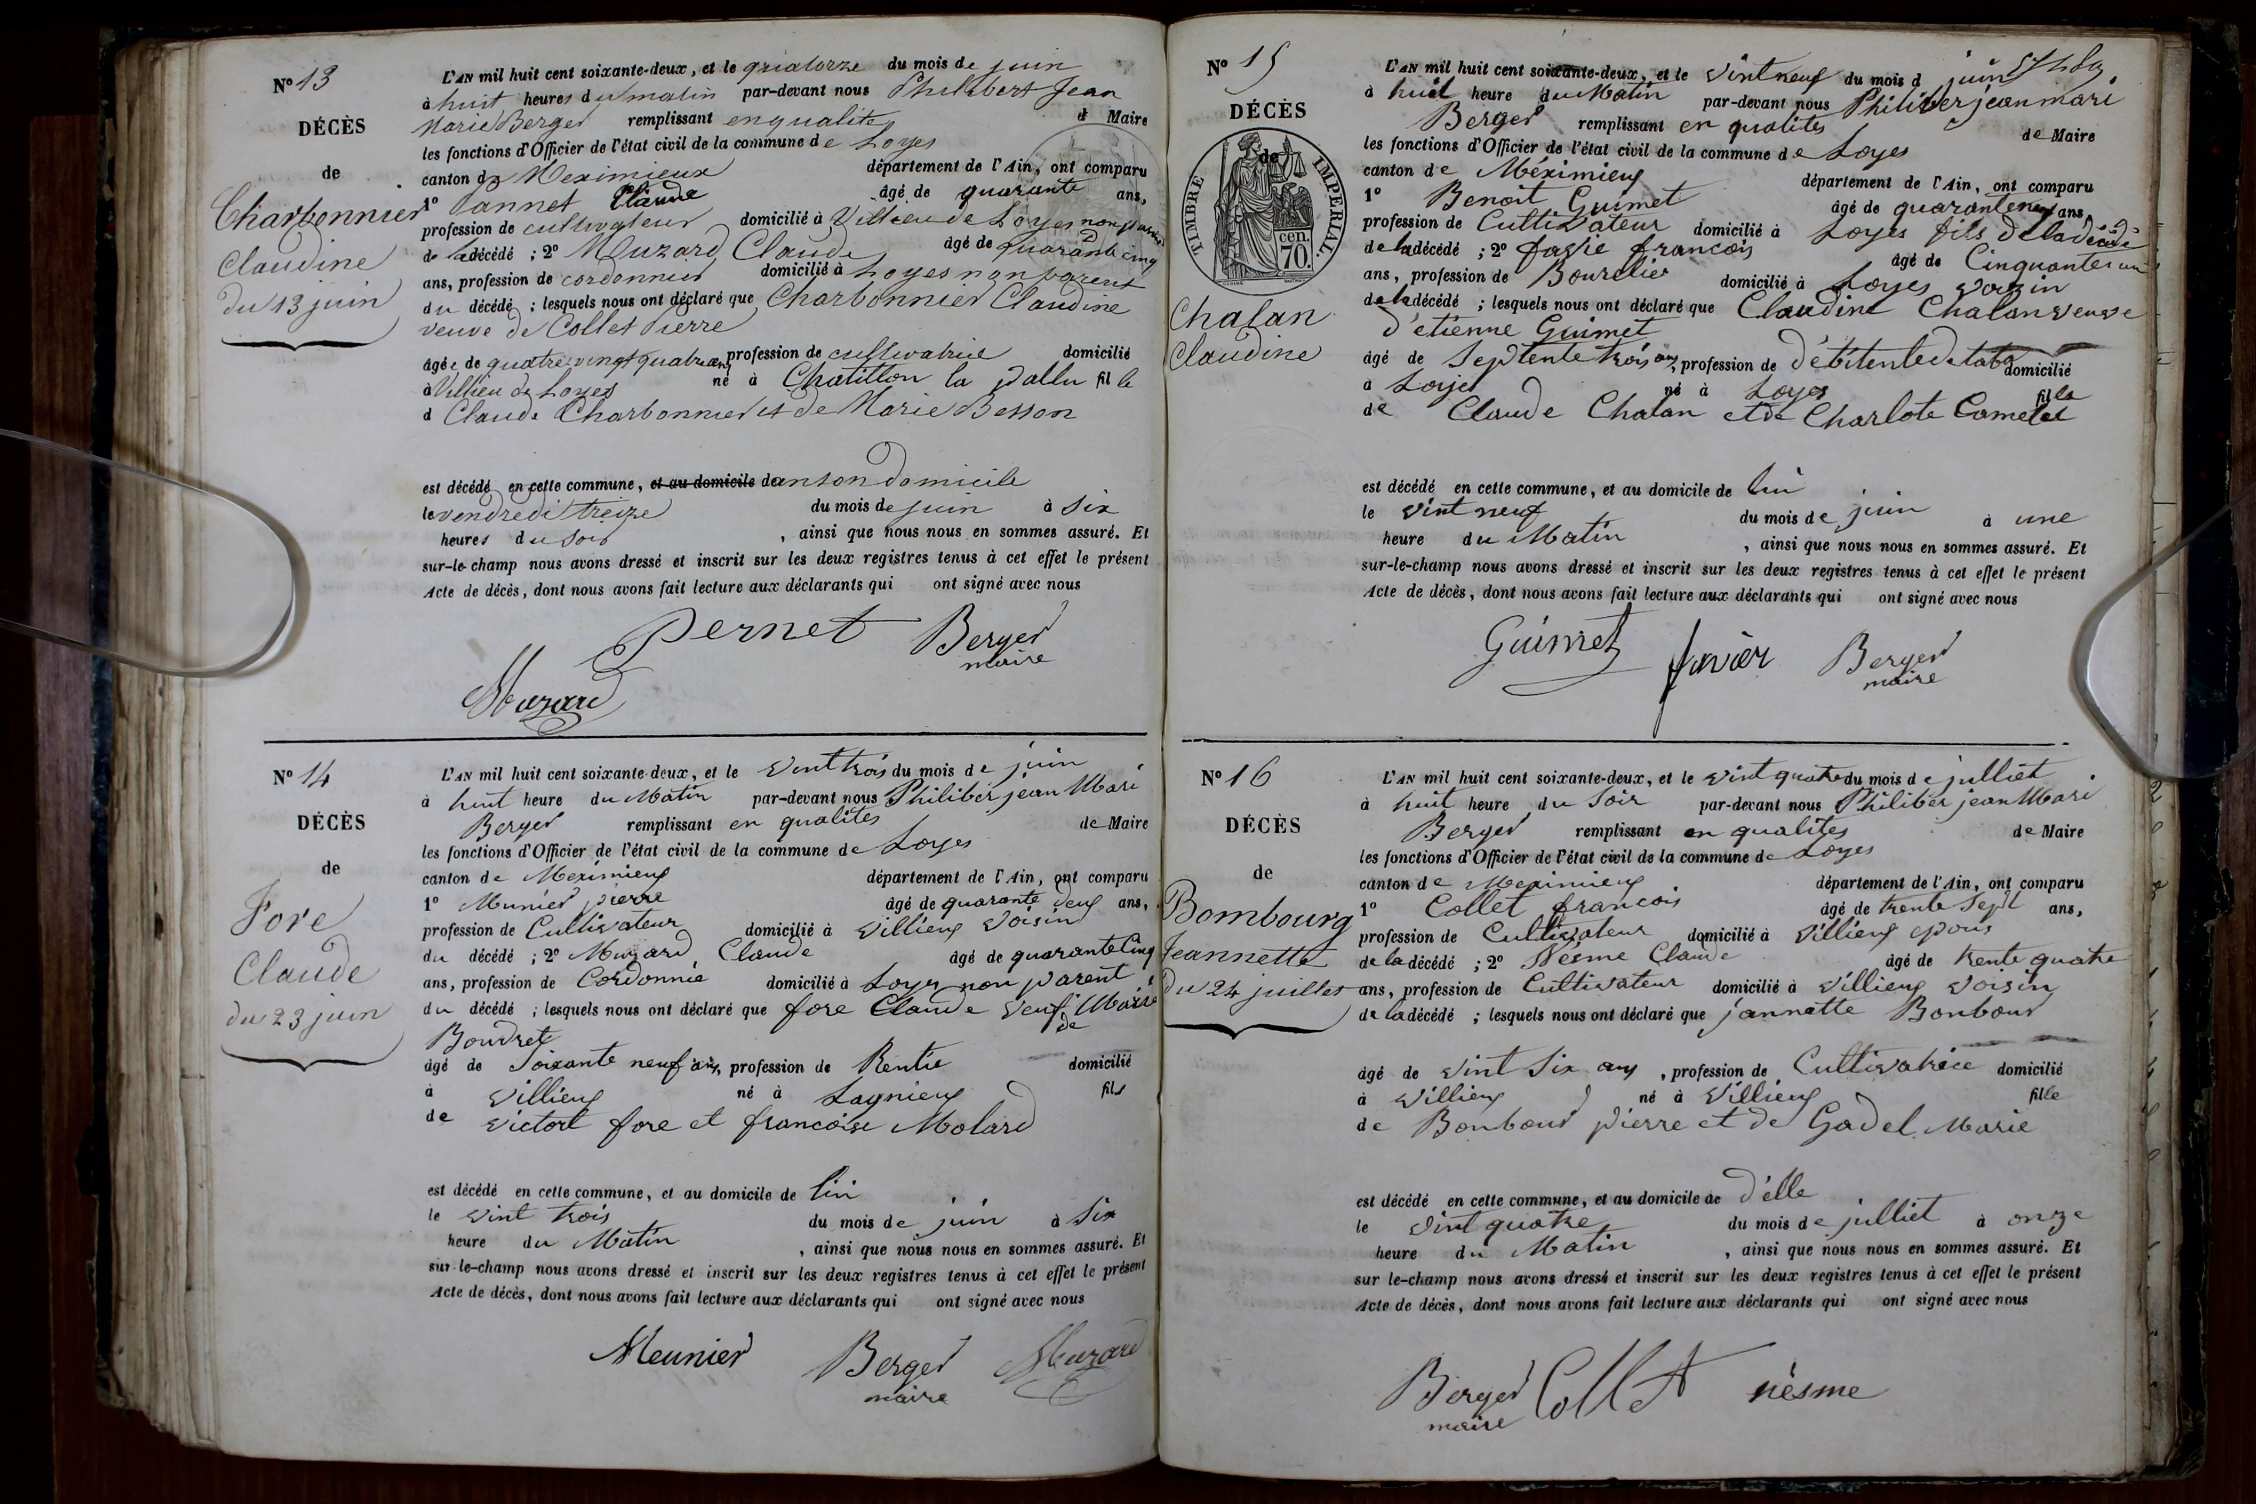 N° 13
DÉCÈS
de
Charbonnier
Claudine
du 13 juin
L'AN mil huit cent soixante-deux, et le quatorze du mois de juin
à huit heures du matin par-devant nous Philibert Jean
Marie Berger remplissant en qualités d Maire
les fonctions d'Officier de l'état civil de la commune de Loyes
canton de Meximieux département de l'Ain, ont comparu
1° Pannet Claude âgé de quarante ans,
profession de cultivateur domicilié à Villieu de Loyes non parent
de la décédé ; 2° Muzard Claude âgé de quarante cinq
ans, profession de cordonnier domicilié à Loyes non parent
du décédé ; lesquels nous ont déclaré que Charbonnier Claudine
veuve de Collet Pierre
âgée de quatre vingt quatre ans profession de cultivatrice domicilié
à Villieu de Loyes né à Chatillon la pallu fil le
d Claude Charbonnier et de Marie Besson
est décédé en cette commune, et au domicile de en son domicile
le vendredi treize du mois de juin à six
heures du soir , ainsi que nous nous en sommes assuré. Et
sur-le-champ nous avons dressé et inscrit sur les deux registres tenus à cet effet le présent
Acte de décès, dont nous avons fait lecture aux déclarants qui ont signé avec nous
Pernet Berger
maire
Muzard
N° 14
DÉCÈS
de
Fore
Claude
du 23 juin
L'AN mil huit cent soixante-deux, et le vint trois du mois de juin
à huit heure du Matin par-devant nous Philiber jean Mari
Berger remplissant en qualités de Maire
les fonctions d'Officier de l'état civil de la commune de Loyes
canton de Meximieux département de l'Ain, ont comparu
1° Munier pierre âgé de quarante deux ans,
profession de Cultivateur domicilié à Villieux Voisin
du décédé ; 2° Muzard Claude âgé de quarante Cinq
ans, profession de Cordonnié domicilié à Loyes non parent
du décédé ; lesquels nous ont déclaré que fore Claude veuf de Marie
Boudret
âgé de Soixante neuf ans, profession de Rentié domicilié
à Villieux né à Lagnieux fils
de victort fore et francoise Molard
est décédé en cette commune, et au domicile de lui
le vint trois du mois de juin à Six
heure du Matin , ainsi que nous nous en sommes assuré. Et
sur-le-champ nous avons dressé et inscrit sur les deux registres tenus à cet effet le présent
Acte de décès, dont nous avons fait lecture aux déclarants qui ont signé avec nous
Meunier Berger Muzard
maire
N° 15
DÉCÈS
de
TIMBRE IMPERIAL.
cen.
70.
Chalan
Claudine
L'AN mil huit cent soixante-deux, et le vint neuf du mois d juin
à huit heure du Matin par-devant nous Philiber jean mari
Berger remplissant en qualités de Maire
les fonctions d'Officier de l'état civil de la commune de Loyes
canton de Méximieux département de l'Ain, ont comparu
1° Benoit Guimet âgé de quarante neuf ans
profession de Cultivateur domicilié à Loyes fils de la décédé
de la décédé ; 2° francois âgé de Cinquante un
ans, profession de Bourelier domicilié à Loyes voizin
de la décédé ; lesquels nous ont déclaré que Claudine Chalan veuve
d'etienne Guimet
âgé de Septente trois ans, profession de débitente de taba domicilié
à Loyes né à Loyes fille
de Claude Chalan et de Charlote Camelet
est décédé en cette commune, et au domicile de lui
le vint neuf du mois de juin à une
heure du Matin , ainsi que nous nous en sommes assuré. Et
sur-le-champ nous avons dressé et inscrit sur les deux registres tenus à cet effet le présent
Acte de décès, dont nous avons fait lecture aux déclarants qui ont signé avec nous
Guimet Berger
maire
N° 16
DÉCÈS
de
Bombourg
Jeannette
du 24 juillet
L'AN mil huit cent soixante-deux, et le vint quatre du mois de julliet
à huit heure du Soir par-devant nous Philiber jean Mari
Berger remplissant en qualités de Maire
les fonctions d'Officier de l'état civil de la commune de Loyes
canton de Meximieux département de l'Ain, ont comparu
1° Collet francois âgé de trente Sept ans,
profession de Cultivateur domicilié à Villieux epous
de la décédé ; 2° Nesme Claude âgé de trente quatre
ans, profession de Cultivateur domicilié à Villieux Voisin
de la décédé ; lesquels nous ont déclaré que jannette Bonbour
âgé de vint Six ans , profession de Cultivatrice domicilié
à Villieux né à Villieux fille
de Bonbour pierre et de Gadel Marie
est décédé en cette commune, et au domicile de d'elle
le vint quatre du mois de julliet à onze
heure du Matin , ainsi que nous nous en sommes assuré. Et
sur le-champ nous avons dressé et inscrit sur les deux registres tenus à cet effet le présent
Acte de décès, dont nous avons fait lecture aux déclarants qui ont signé avec nous
Berger Collet nèsme
maire